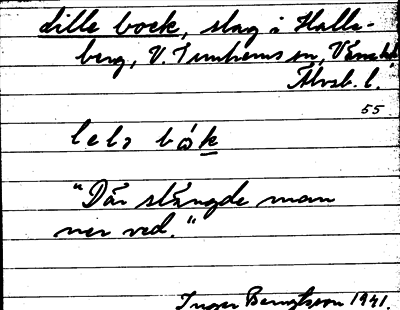 dille bock, slag i Halle-
berg, V. Tunhems sn, Väne hd,
Älvsb. l.
55
lelə bòk
"Där stängde man
ner ved."
Inger Bengtsson 1941.